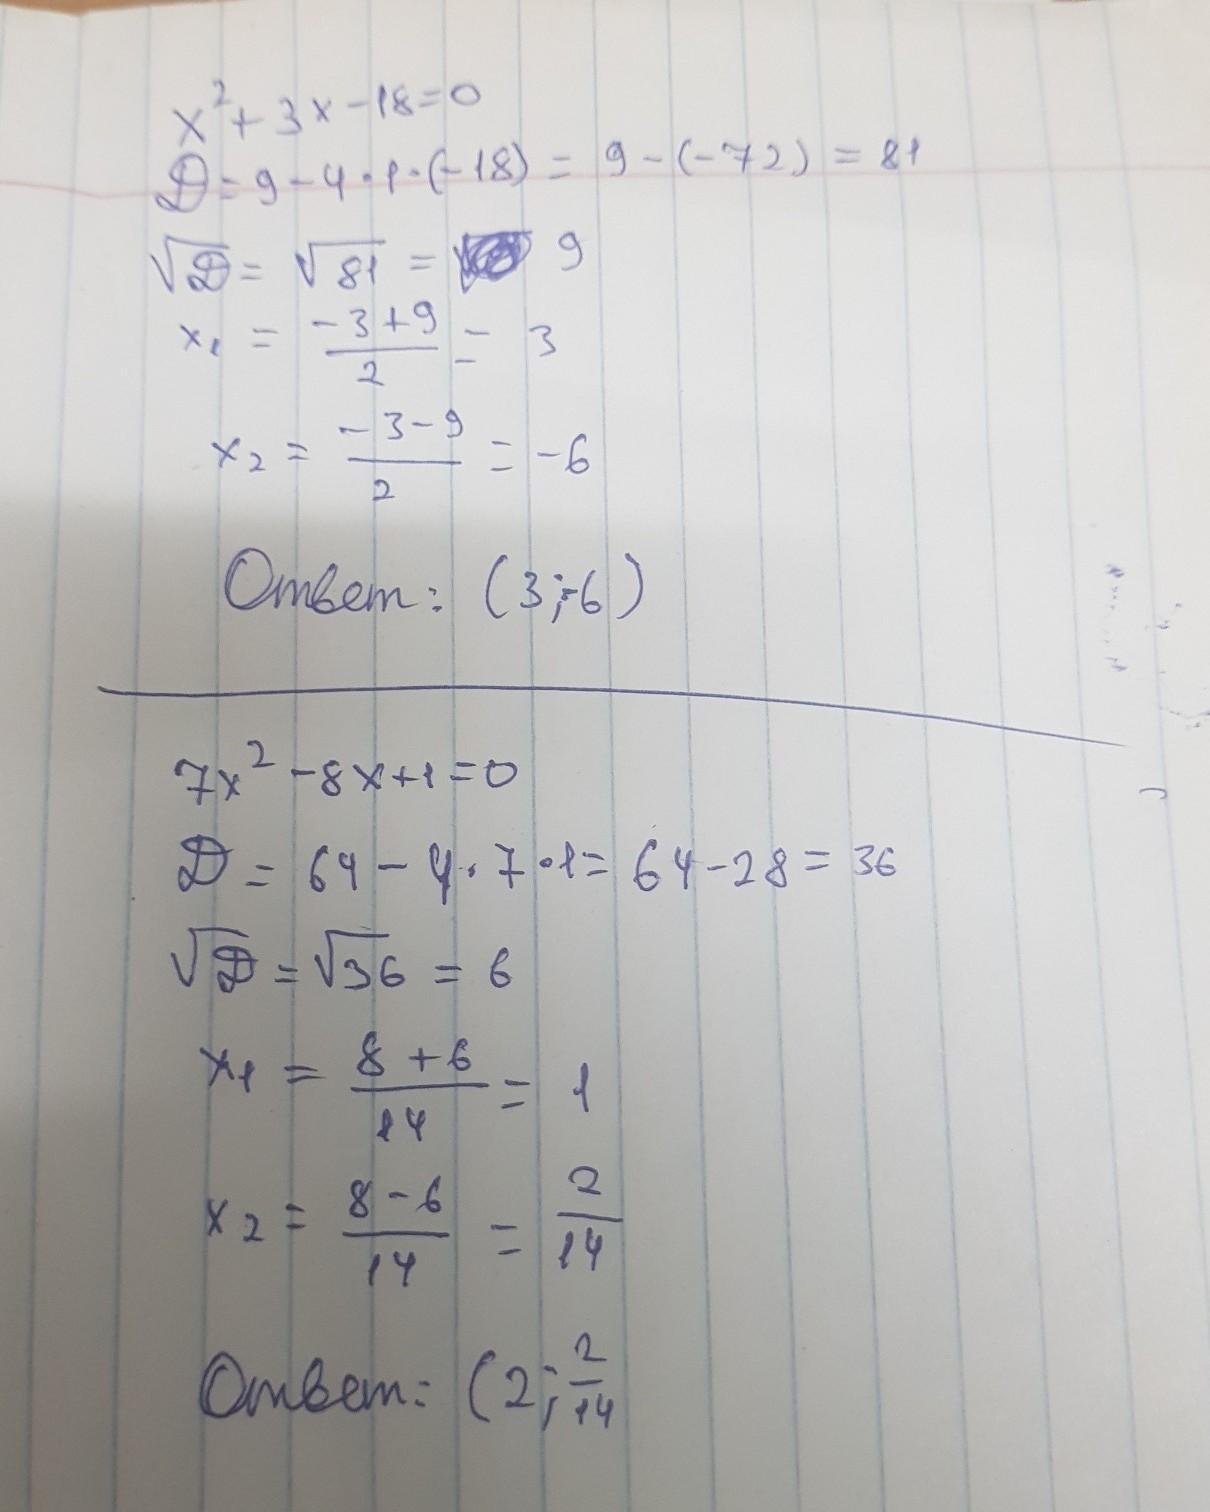 x² + 3x - 18 = 0
D = 9 - 4 · 1 · (-18) = 9 - (-72) = 81
√D = √81 = 9
x₁ = (-3+9)/2 = 3
x₂ = (-3-9)/2 = -6
Ответ: (3; -6)
7x² - 8x + 1 = 0
D = 64 - 4 · 7 · 1 = 64 - 28 = 36
√D = √36 = 6
x₁ = (8+6)/14 = 1
x₂ = (8-6)/14 = 2/14
Ответ: (2; 2/14